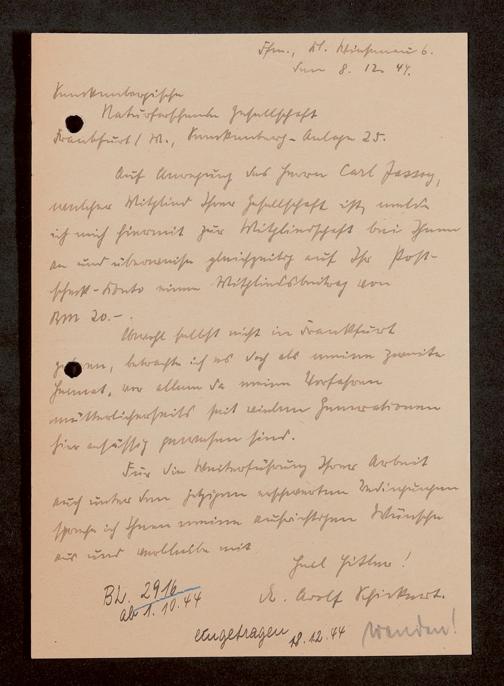 Ffm., Kl. Wiesenau 6.
den 8. 12. 44.
Senckenbergische
Naturforschende Gesellschaft
Frankfurt / M., Senckenberg-Anlage 25.
Auf Anregung des Herrn Carl Jassoy,
welcher Mitglied Ihrer Gesellschaft ist, melde
ich mich hiermit zur Mitgliedschaft bei Ihnen
an und überweise gleichzeitig auf Ihr Post-
scheck-Konto einen Mitgliedsbeitrag von
RM 20.-.
Obwohl selbst nicht in Frankfurt
geboren, betrachte ich es doch als meine zweite
Heimat, vor allem da meine Vorfahren
mütterlicherseits seit vielen Generationen
hier ansässig gewesen sind.
Für die Weiterführung Ihrer Arbeit
auch unter den jetzigen erschwerten Bedingungen
spreche ich Ihnen meine aufrichtigen Wünsche
aus und verbleibe mit
Heil Hitler!
Dr. Adolf
BL. 2916
ab 1. 10. 44
eingetragen 18.12.44
Wenden!